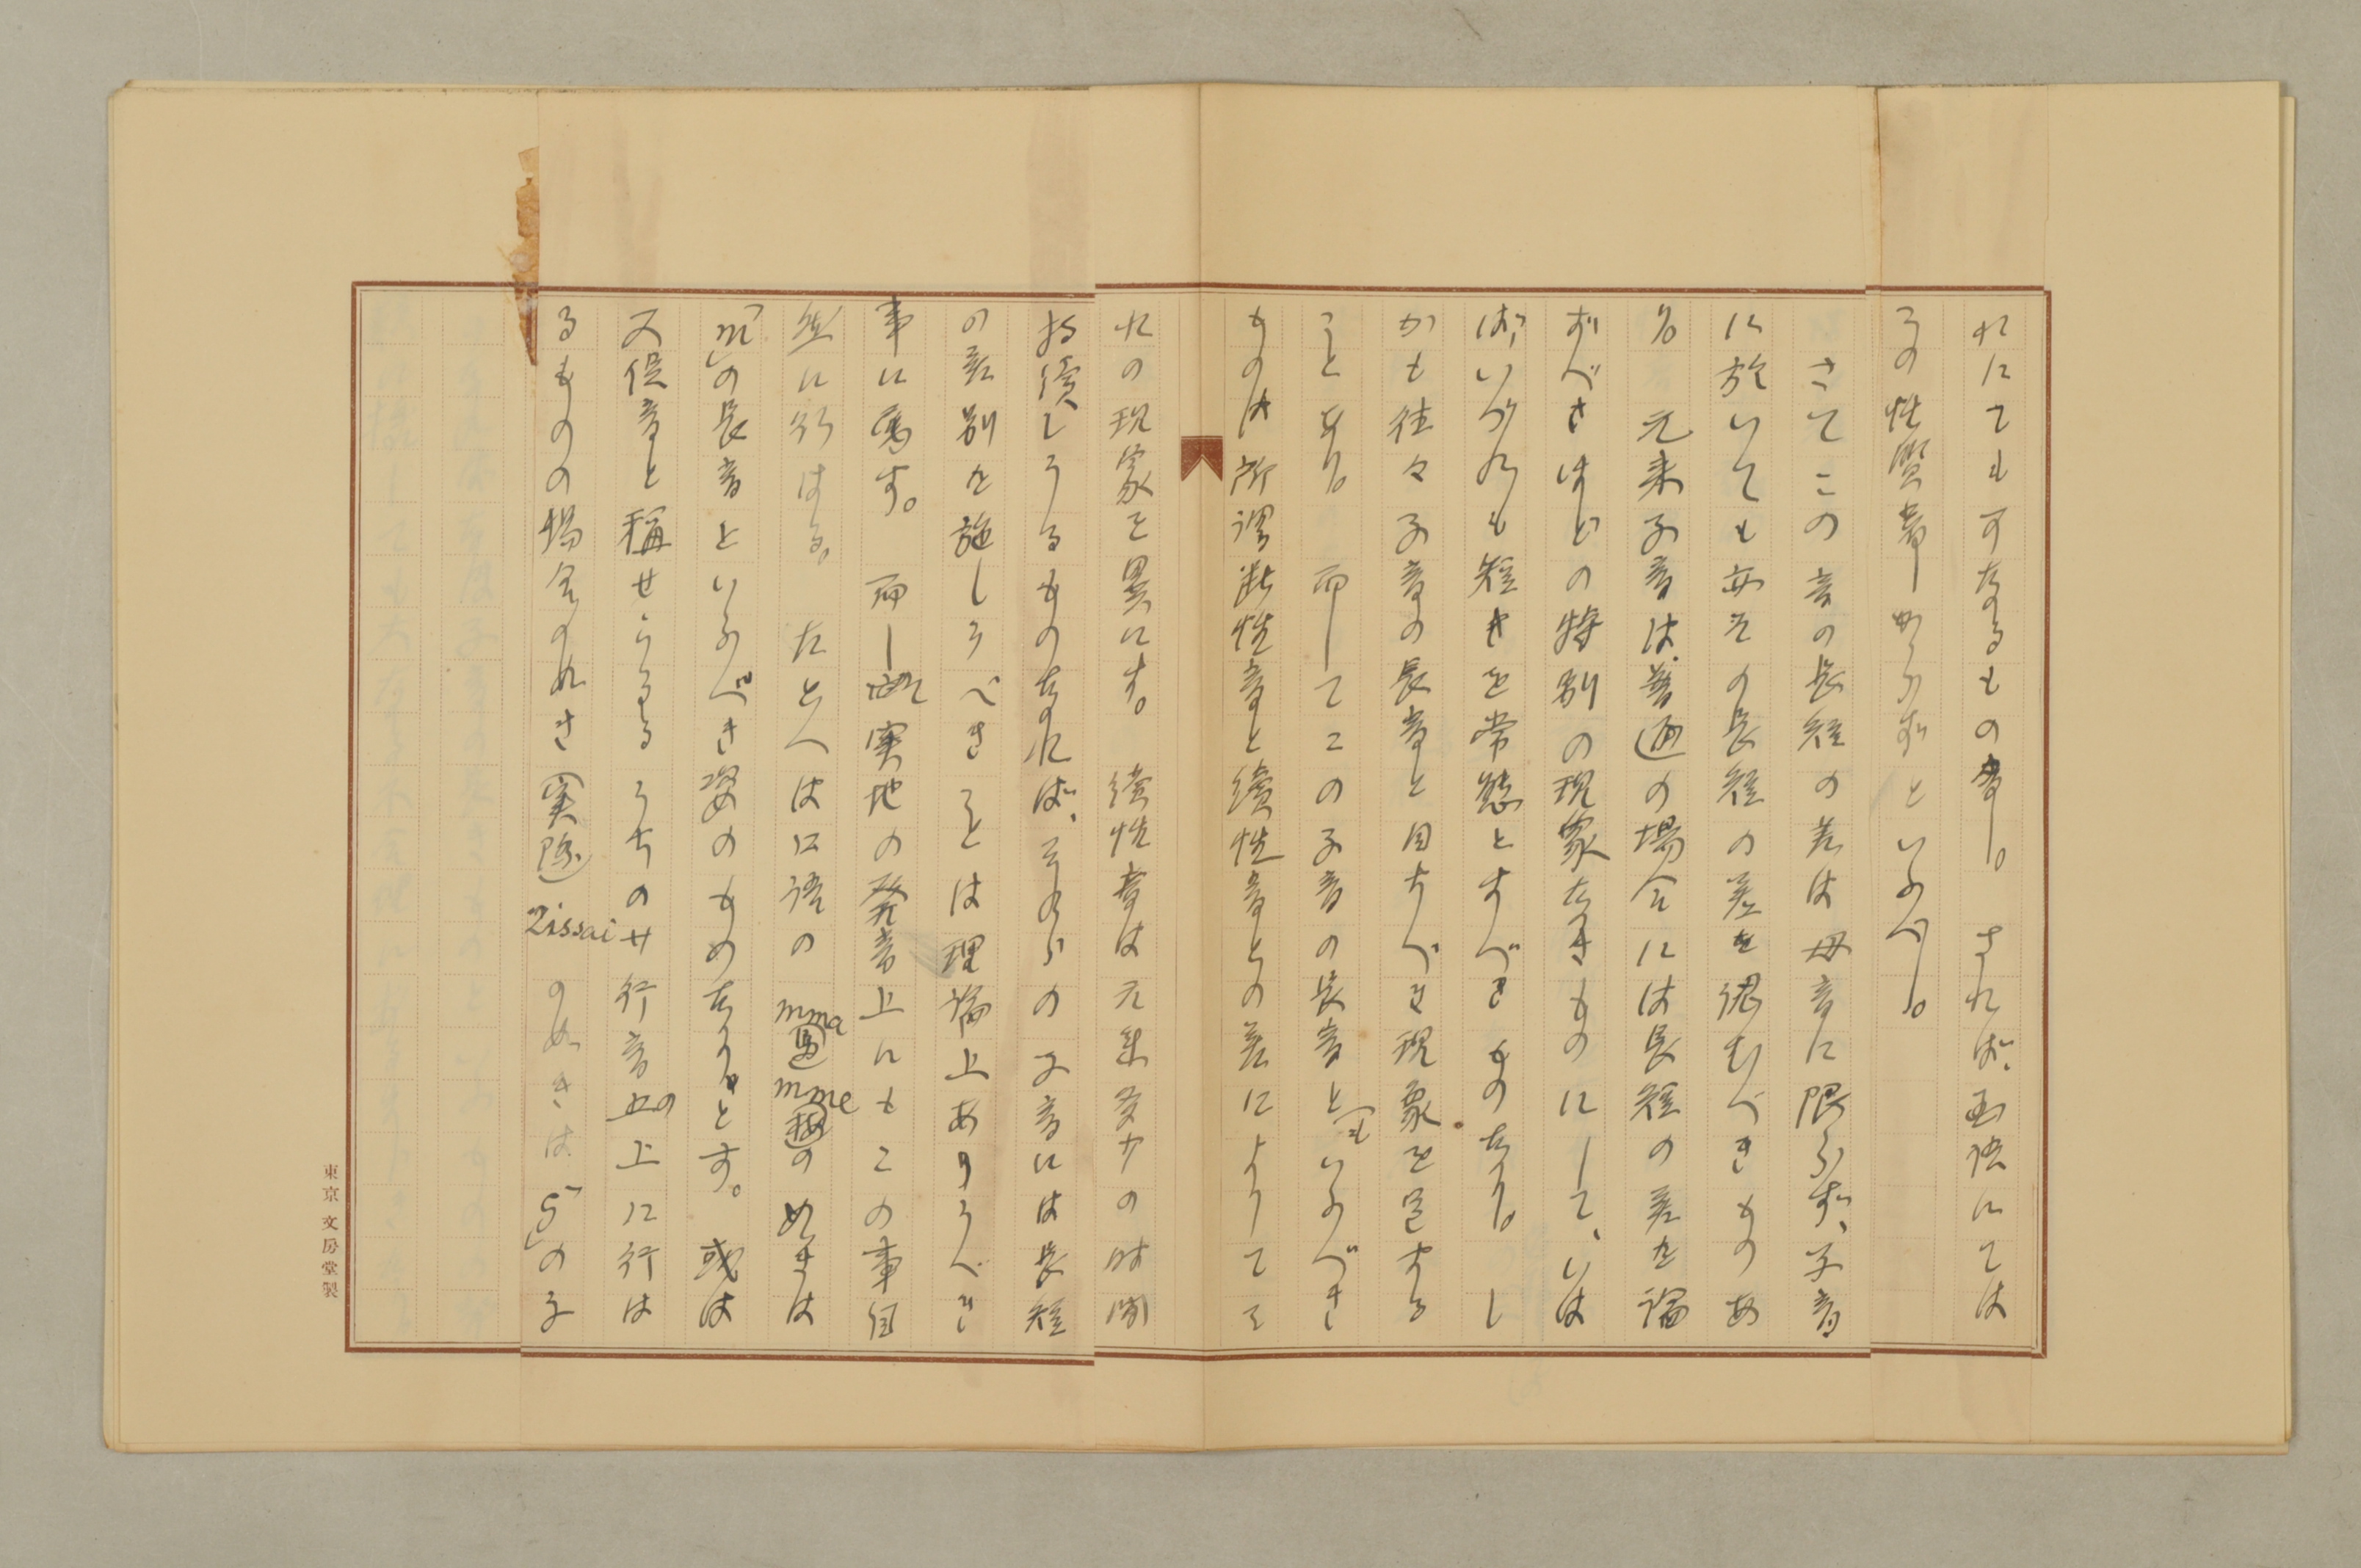 れにても可なるもの多し。されば、國語にては
その性質著しからずといふべし。
さてこの音の長短の差は母音に限らず、子音
に於いても亦その長短の差を認むべきものあ
り。元来子音は普通の場合には長短の差を論
ずべきほどの特別の現象なきものにして、いは
ば、いづれも短きを常態とすべきものなり。し
かも往々子音の長音と目すべき現象を呈する
ことあり。而してこの子音の長音ともいふべき
ものは所謂断性音と續性音との差によりてそ
れの現象を異にす。續性音は元来多少の時間
持續しうるものなれば、それらの子音には長短
の差別を施しうべきことは理論上ありうべき
事に属す。而して実地の発音上にもこの事自
然に行はる。たとへは口語の mma(馬) mme(梅)の如きは
「m」の長音といふべき姿のものなりとす。或は
又促音と稱せらるるうちのサ行音の上に行は
るものの場合の如き(実際) Zissai の如きは「s」の子
東京 文房堂製